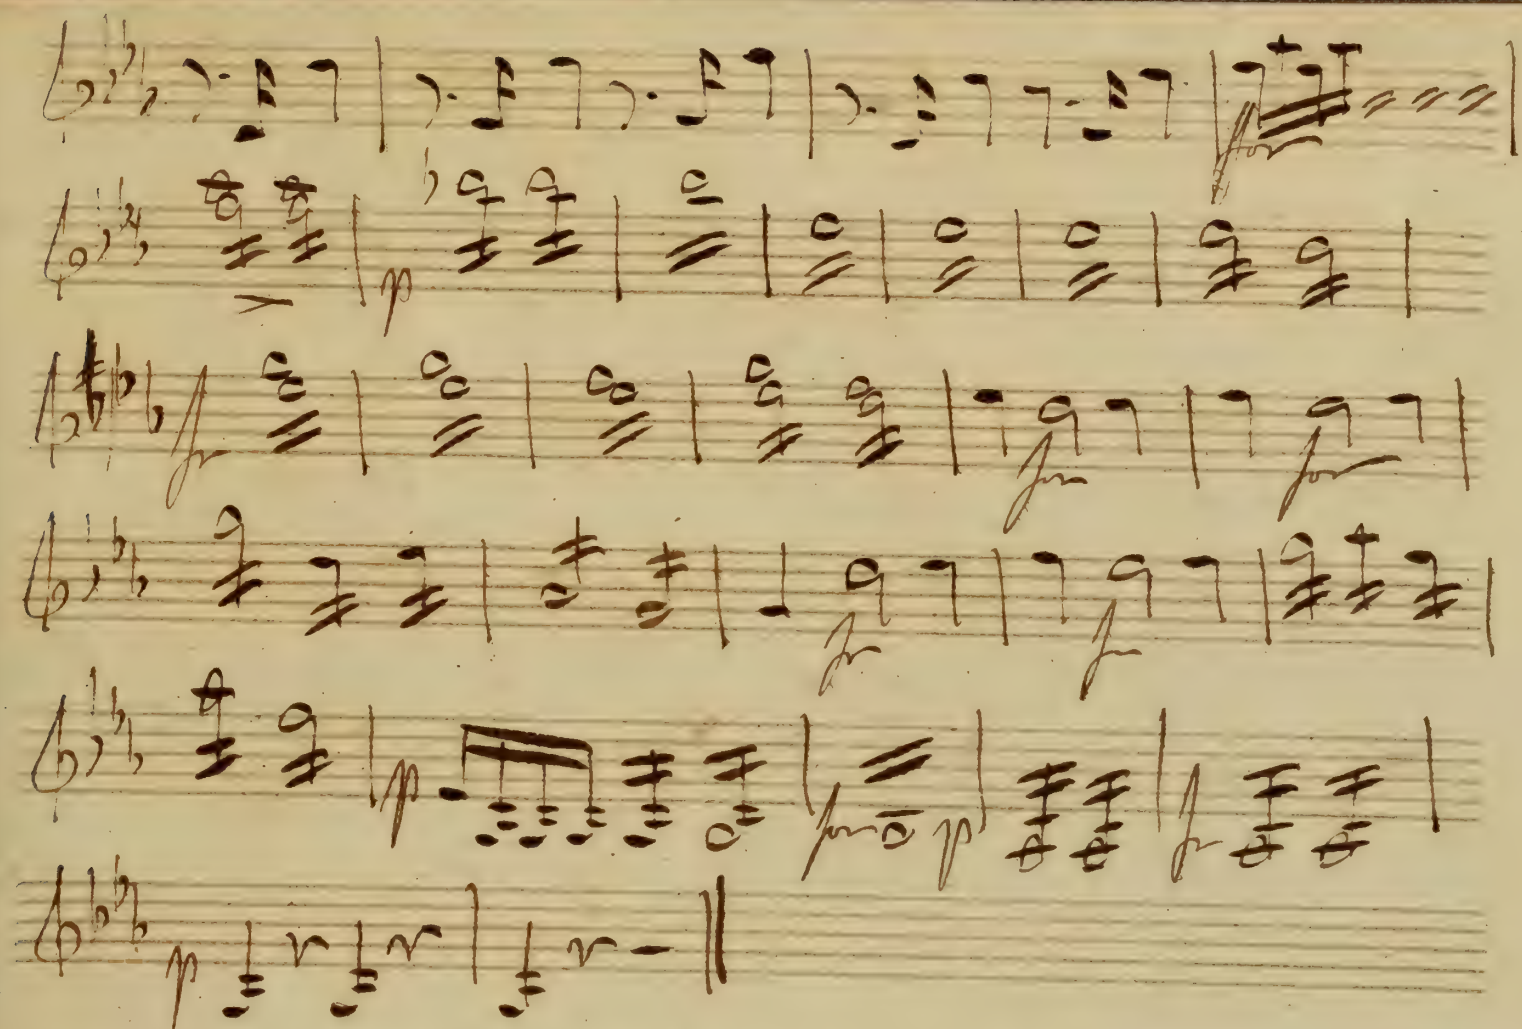 for
p
fr for for
fr fr
p for p fr
p